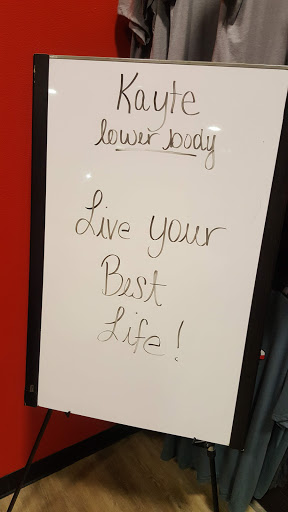 Kayte
lower body
Live your
Best
Life!